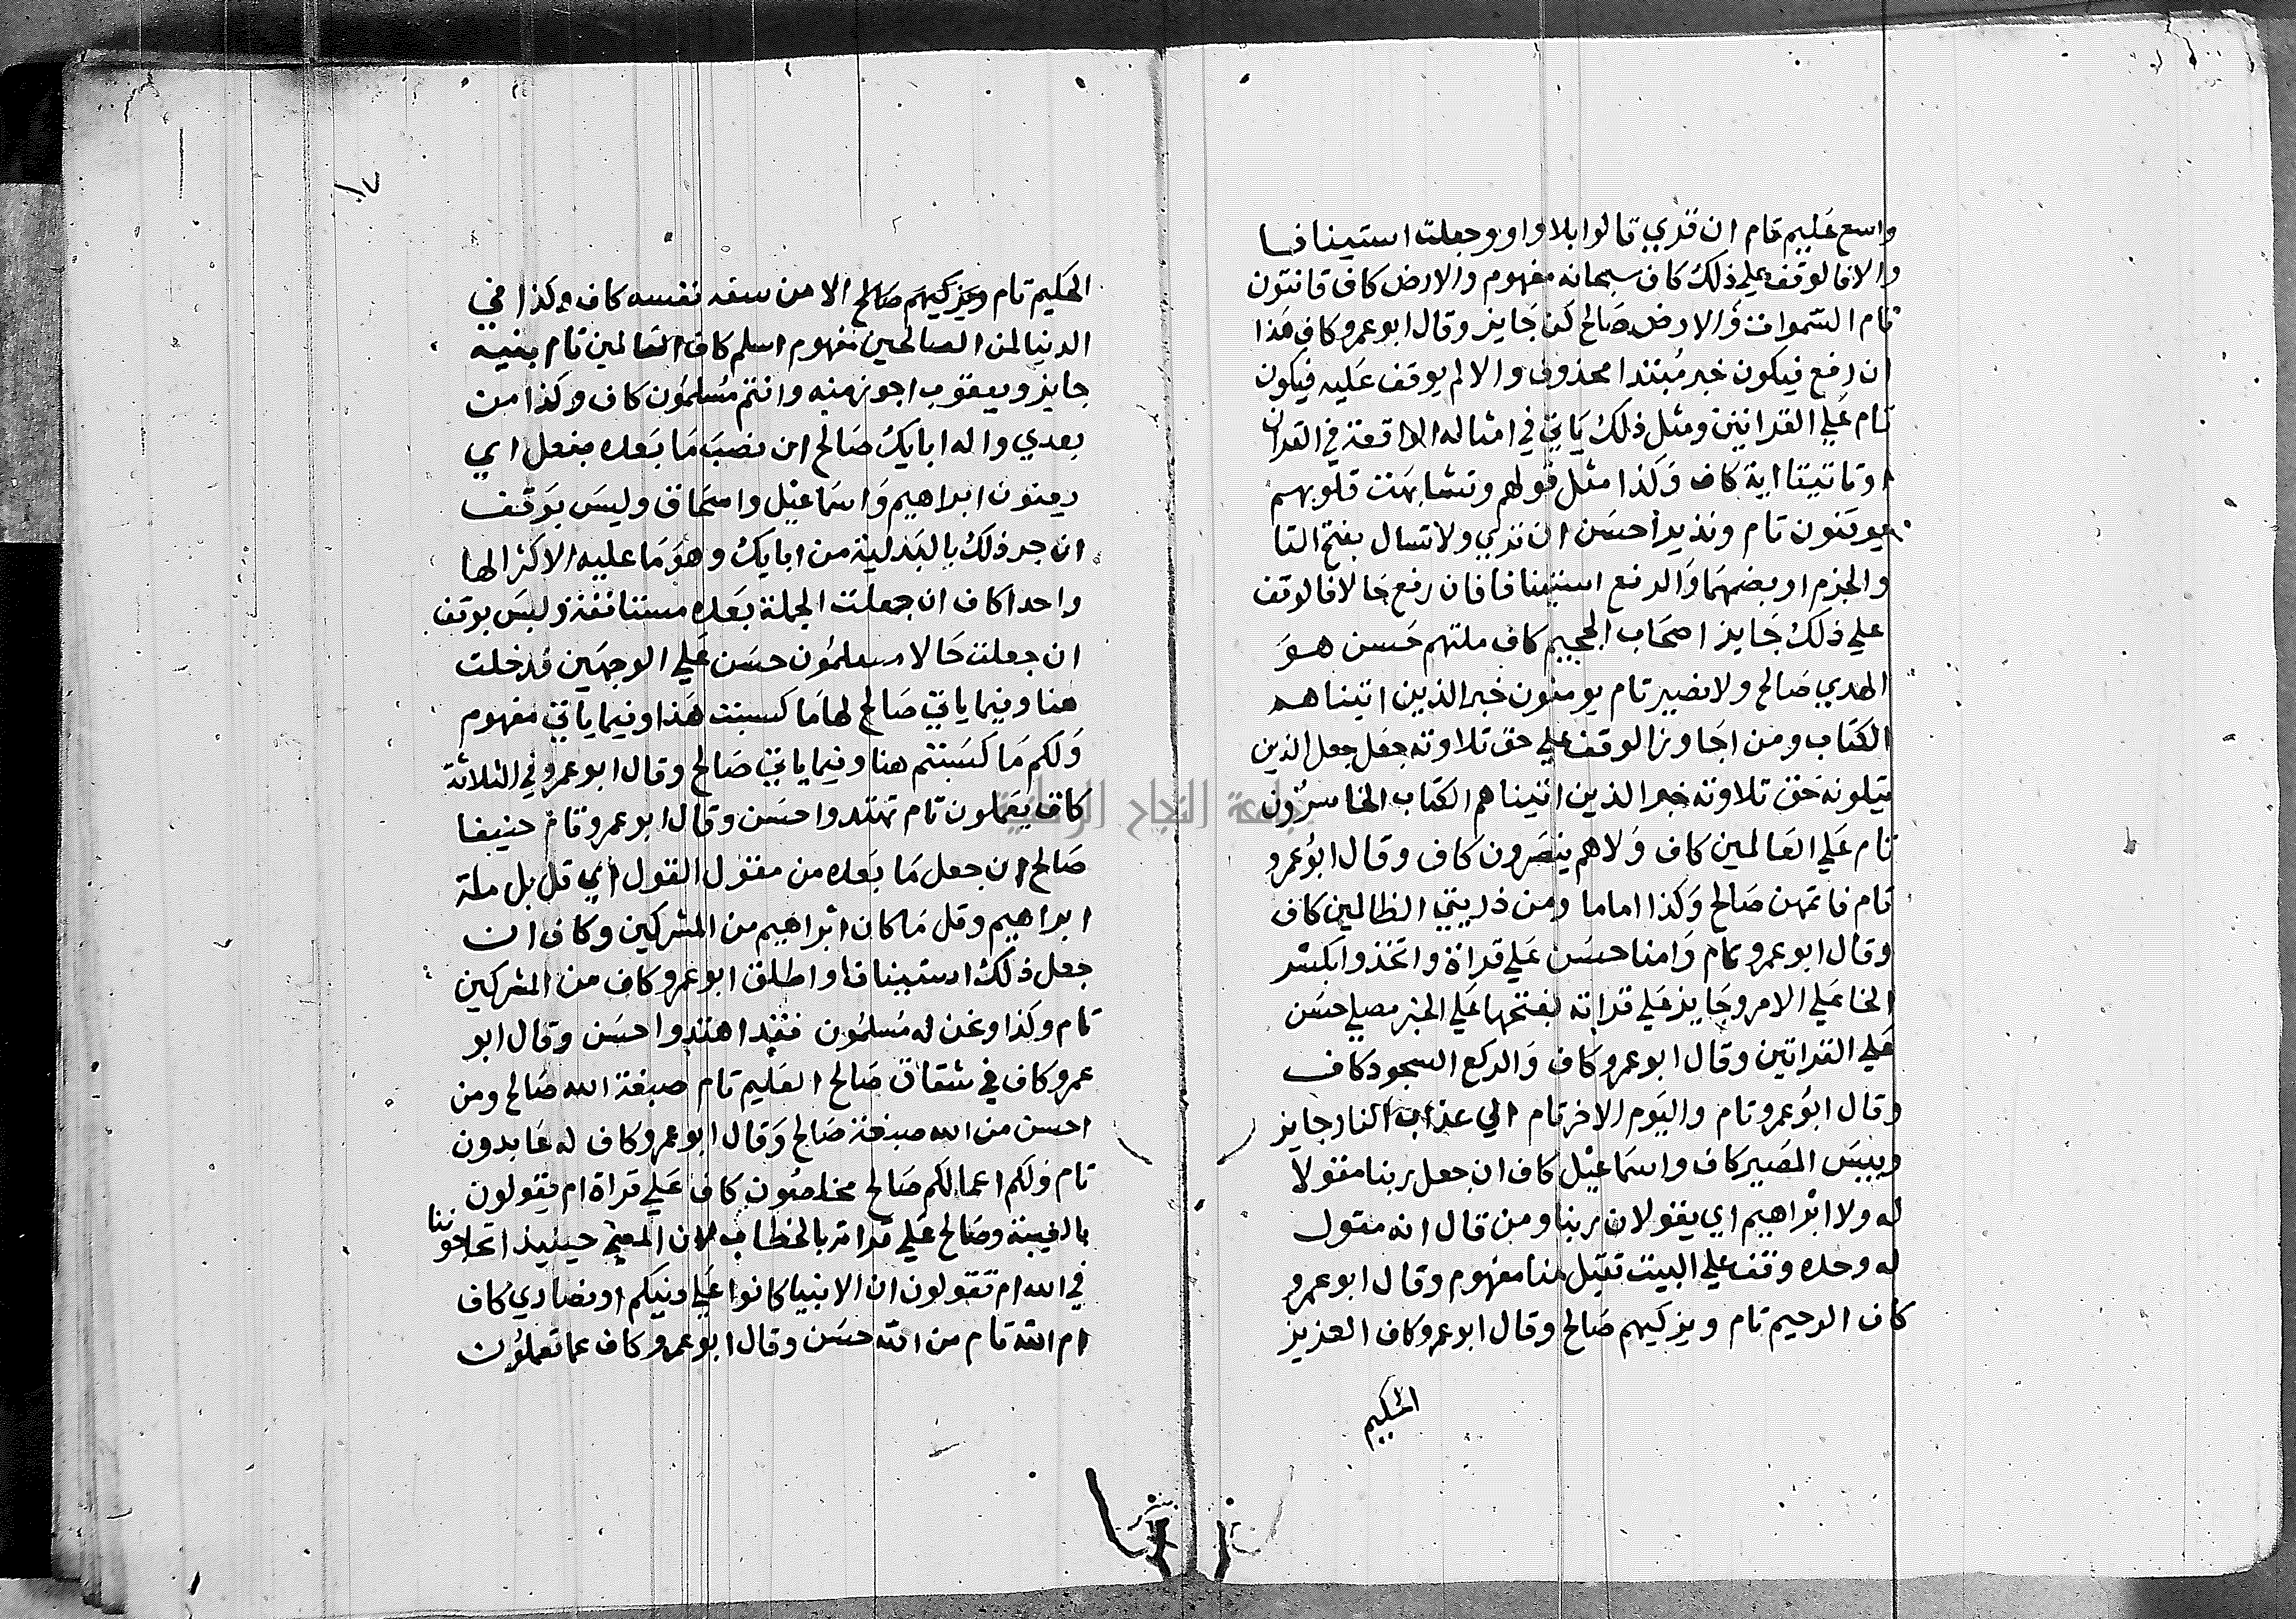 واسع عليم تام ان قري قالوا بلا واو وجعلت استينافا
والا فالوقف علي ذلك كاف سبحانه مفهوم والارض كاف قانتون
تام السموات والارض صالح كن جايز وقال ابو عمرو كاف هذا
ان رفع فيكون خبر مبتدا محذوف والا لم يوقف عليه فيكون
تام علي القراتين ومثل ذلك ياتي في امثاله الواقعة في القران
اوتاتينا اية كاف وكذا مثل قولهم وتشابهت قلوبهم
يوقنون تام ونذيرا حسن ان قري ولا تسال بفتح التا
والجزم او بضمهما والرفع استينافا فان رفع حالا فالوقف
علي ذلك جايز اصحاب الجحيم كاف ملتهم حسن هو
الهدي صالح ولا نصير تام يومنون خبر الذين اتيناهم
الكتاب ومن اجاوز الوقف علي حق تلاوته جعل جعل الذين
يتلونه حق تلاوته خبر الذين اتيناهم الكتاب الخاسرون
تام علي العالمين كاف ولا هم ينصرون كاف وقال ابو عمرو
تام فاتمهن صالح وكذا اماما ومن ذريتي الظالمين كاف
وقال ابو عمرو تام وامنا حسن علي قراة واتخذوا بكسر
الخا علي الامر وجايز علي قراته بفتحها علي الخبر مصلي حسن
علي القراتين وقال ابو عمرو كاف والركع السجود كاف
وقال ابو عمرو تام واليوم الاخر تام الي عذاب النار جايز
وبيس المصير كاف واسماعيل كاف ان جعل ربنا مقولا
له ولا ابراهيم اي يقولان ربنا ومن قال انه مقول
له وحده وقف علي البيت تقبل منا مفهوم وقال ابو عمرو
كاف الرحيم تام ويزكيهم صالح وقال ابو عمرو كاف العزيز
الحكيم
الحكيم تام ويزكيهم صالح الا من سفه نفسه كاف وكذا في
الدنيا لمن الصالحين مفهوم اسلم كاف العالمين تام بنيه
جايز ويعقوب اجوز منه وانتم مسلمون كاف وكذا من
بعدي واله ابايك صالح ان نصب ما بعده بفعل اي
يعنون ابراهيم واسماعيل واسحاق وليس بوقف
ان جر ذلك بالبدلية من ابايك وهو ما عليه الاكثر الها
واحدا كاف ان جعلت الجملة بعده مستانفة وليس بوقف
ان جعلت حالا مسلمون حسن علي الوجهين قد خلت
هنا وفيما ياتي صالح لها ما كسبت هذا وفيما ياتي مفهوم
ولكم ما كسبتم هنا وفيما ياتي صالح وقال ابو عمرو في الثلاثة
كاف يعملون تام تهتدوا حسن وقال ابو عمرو تام حنيفا
صالح ان جعل ما بعده من مقول القول اي قل بل ملة
ابراهيم وقل ما كان ابراهيم من المشركين وكاف ان
جعل ذلك استينافا واطلق ابو عمرو كاف من المشركين
تام وكذا ونحن له مسلمون فقد اهتدوا حسن وقال ابو
عمرو كاف في شقاق صالح العليم تام صبغة الله صالح ومن
احسن من الله صبغة صالح وقال ابو عمرو كاف له عابدون
تام ولكم اعمالكم صالح مخلصون كاف علي قراة ام يقولون
بالغيبة وصالح علي قراته بالخطاب لان المعني حينيذ اتحاجوننا
في الله ام تقولون ان الانبيا كانوا علي دينكم او نصاري كاف
ام الله تام من الله حسن وقال ابو عمرو كاف عما تعملون
جامعة النجاح الوطنية